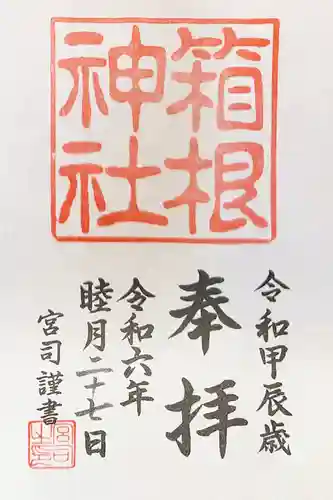 箱根
神社
令和甲辰歳
奉拝
令和六年
睦月二十七日
宮司謹書
宮司之印